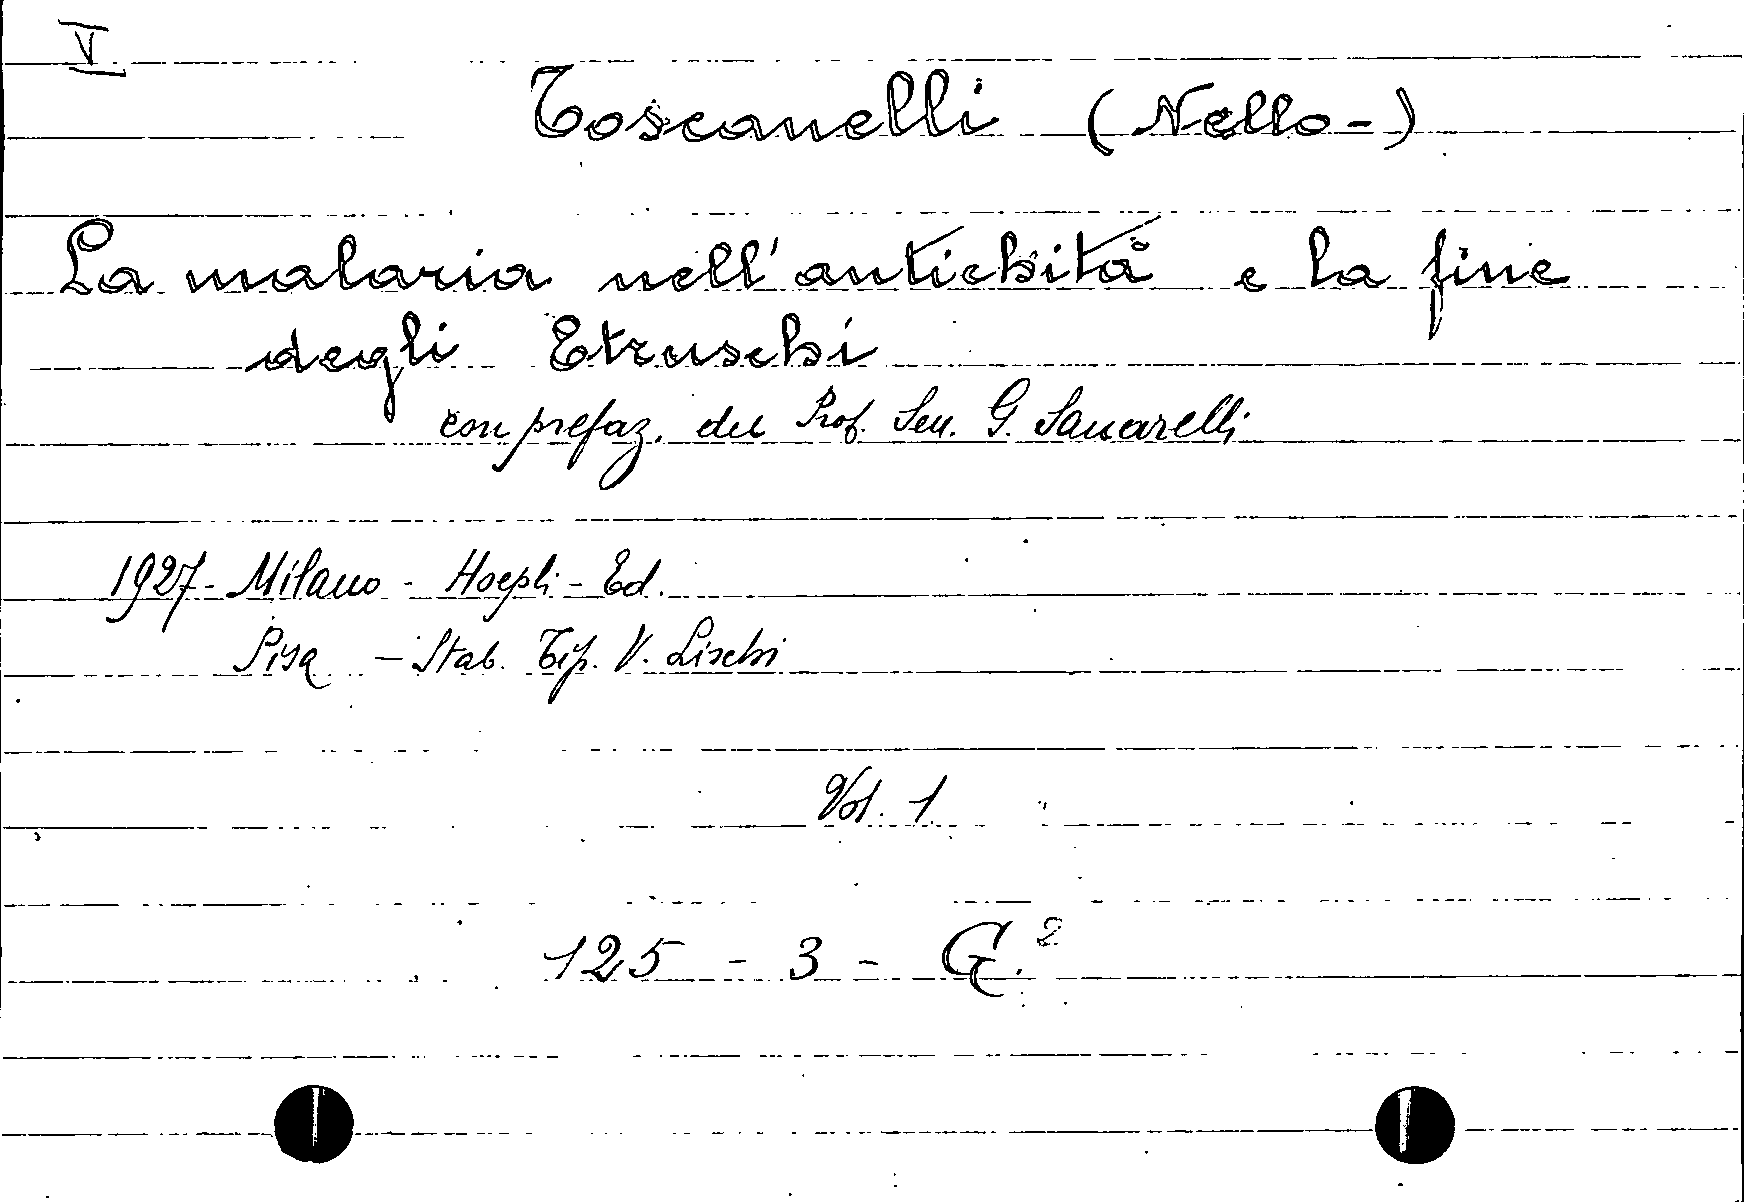 V
Toscanelli (Nello-)
La malaria nell'antichità e la fine
degli Etruschi
con prefaz. del Prof. Sen. G. Sanarelli
1927 - Milano - Hoepli - Ed.
Pisa - Stab. Tip. V. Lischi
Vol. 1
125 - 3 - G.²